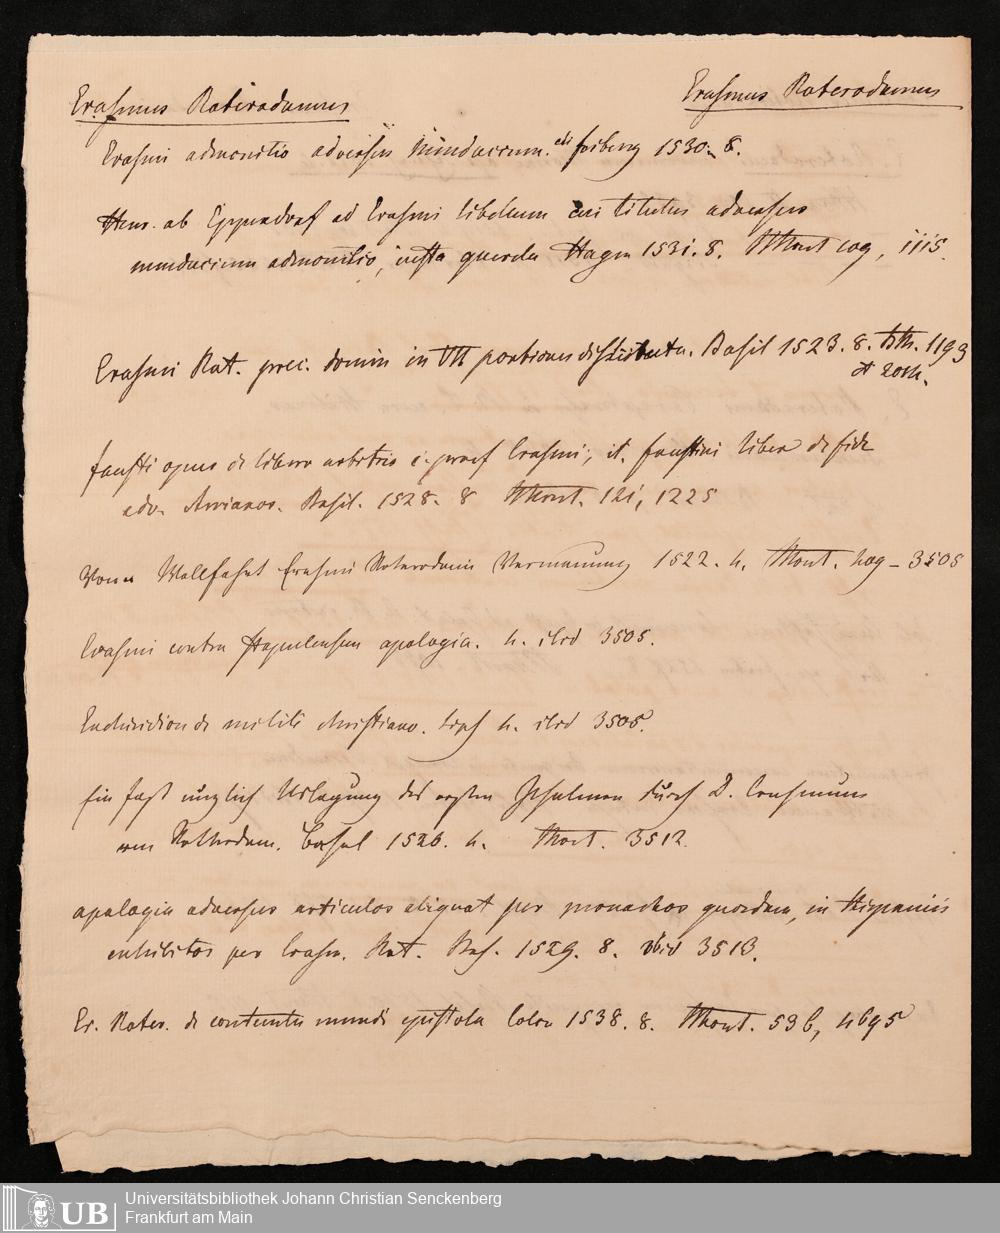 Erasmus Roterodamus
Erasmus Roterodamus
Erasmi admonitio adversus mendacium. edi friberg 1530. 8.
Henr. ab Eppendorf ad Erasmi libellum cui titulus adversus
mendacium admonitio, iusta querela Hagen 1531. 8. Mont cog, 1115.
Erasmi Rot. prec. domin in VII portiones distributa. Basil 1523. 8. 1193
et 2011.
fausti opus de libero arbitrio c. praef Erasmi; it. faustini liber de fide
adv. Arrianos. Basil. 1528. 8 Mont. 121, 1225
Von Wallfahrt Erasmi Roterodami Vermanung 1522. 4. Mont. hog - 3505
Erasmi contra Stapulensem apologia. 4. ibid 3505.
Enchiridion de milite christiano. 4. ibid 3505.
Ein fast nuzlich Uslegung des ersten Psalmen durch D. Erasmum
von Rotterdam. Basel 1526. 4. Mont. 3512.
apologia adversus articulos aliquot per monachos quosdam, in Hispaniis
exhibitos per Erasm. Rot. Bas. 1529. 8. ibid 3513.
Er. Roter. de contemtu mundi epistola Colon 1538. 8. Mont. 536, 4695
Universitätsbibliothek Johann Christian Senckenberg
Frankfurt am Main
UB